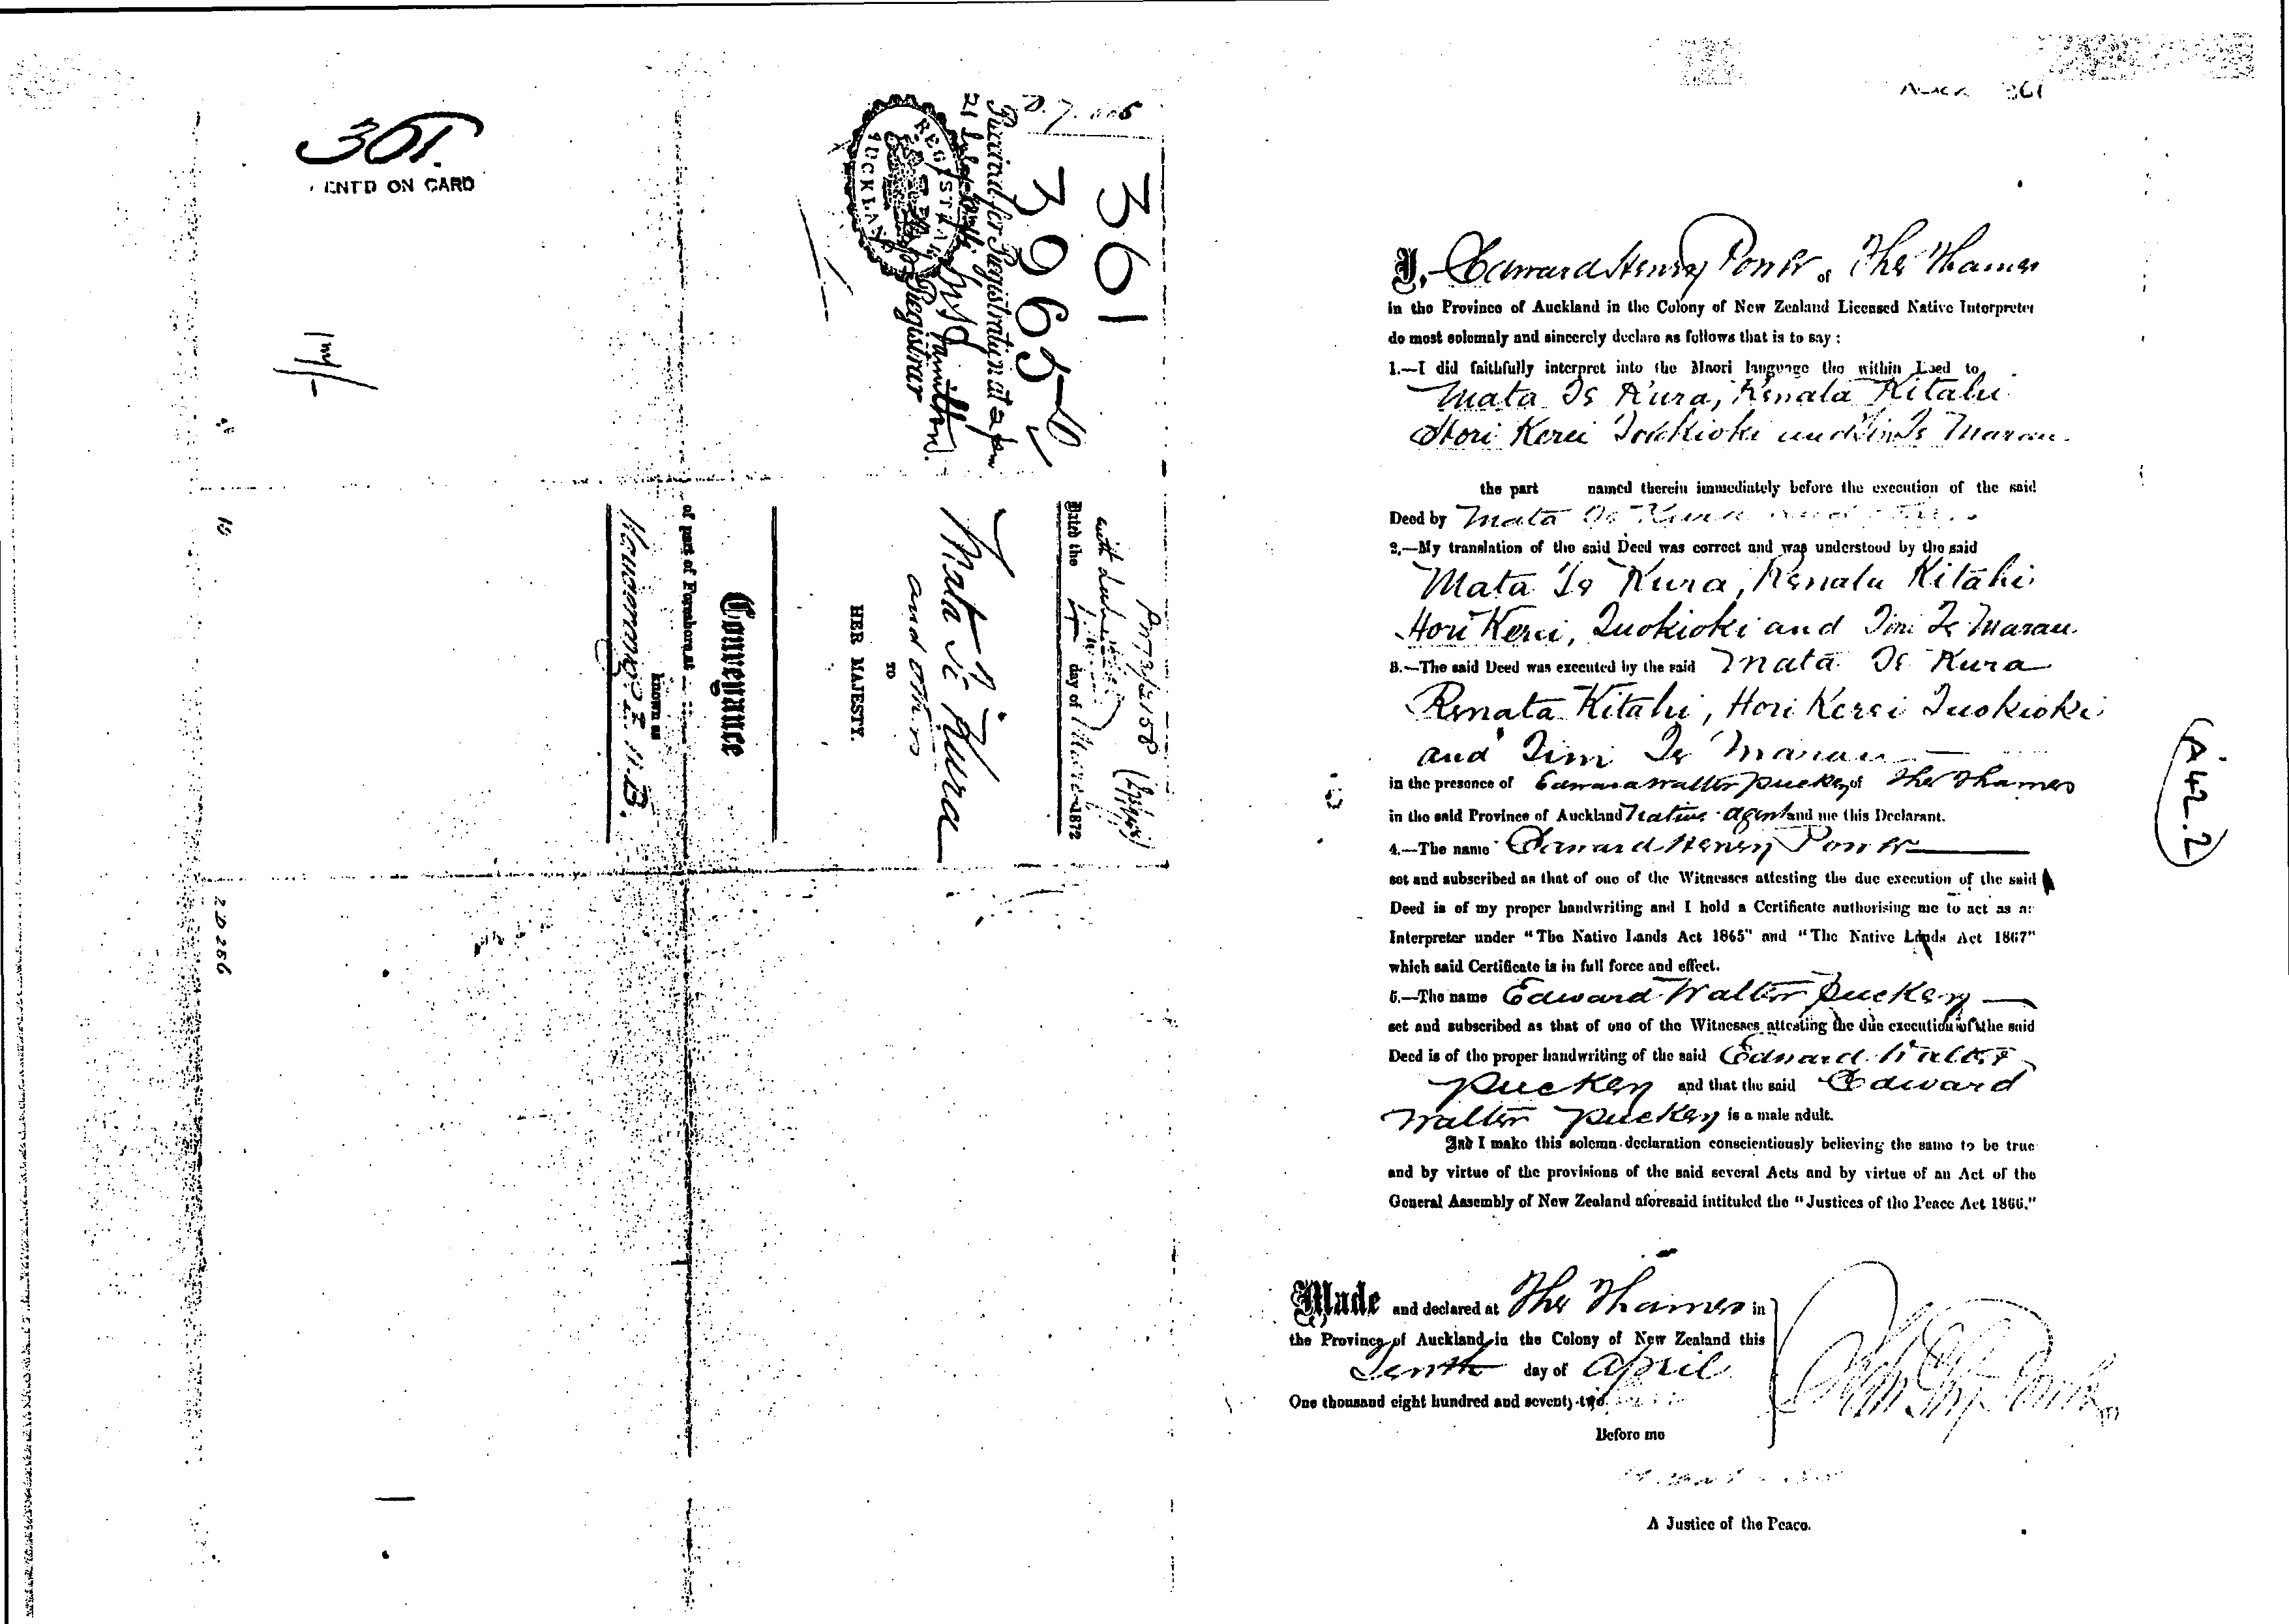 361.
ENT'D ON CARD
361
3965
Received for Registration at 2 pm
Registrar
REGISTRAR
AUCKLAND
Dated the 4 day of March 1872
Mata Te Kura
and others
TO
HER MAJESTY.
Conveyance
of part of Foreshore at
known as
II B.
2 D 286
361
I, Edward Henry Power of The Thames
in the Province of Auckland in the Colony of New Zealand Licensed Native Interpreter
do most solemnly and sincerely declare as follows that is to say :
1.—I did faithfully interpret into the Maori language the within Deed to
Mata Te Kura, Renata Kitahi
Hori Kerei Tuokioki and Timi Te Marau.
the part named therein immediately before the execution of the said
Deed by Mata Te Kura and
2.—My translation of the said Deed was correct and was understood by the said
Mata Te Kura, Renata Kitahi
Hori Kerei, Tuokioki and Timi Te Marau.
3.—The said Deed was executed by the said Mata Te Kura
Renata Kitahi, Hori Kerei Tuokioki
and Timi Te Marau
in the presence of Edward Walter Puckey of The Thames
in the said Province of Auckland Native Agent and me this Declarant.
4.—The name Edward Henry Power
set and subscribed as that of one of the Witnesses attesting the due execution of the said
Deed is of my proper handwriting and I hold a Certificate authorising me to act as an
Interpreter under "The Native Lands Act 1865" and "The Native Lands Act 1867"
which said Certificate is in full force and effect.
5.—The name Edward Walter Puckey
set and subscribed as that of one of the Witnesses attesting the due execution of the said
Deed is of the proper handwriting of the said Edward Walter
Puckey and that the said Edward
Walter Puckey is a male adult.
And I make this solemn declaration conscientiously believing the same to be true
and by virtue of the provisions of the said several Acts and by virtue of an Act of the
General Assembly of New Zealand aforesaid intituled the "Justices of the Peace Act 1866."
(A42.2)
Made and declared at The Thames in
the Province of Auckland in the Colony of New Zealand this
Tenth day of April
One thousand eight hundred and seventy-two
Before me
A Justice of the Peace.